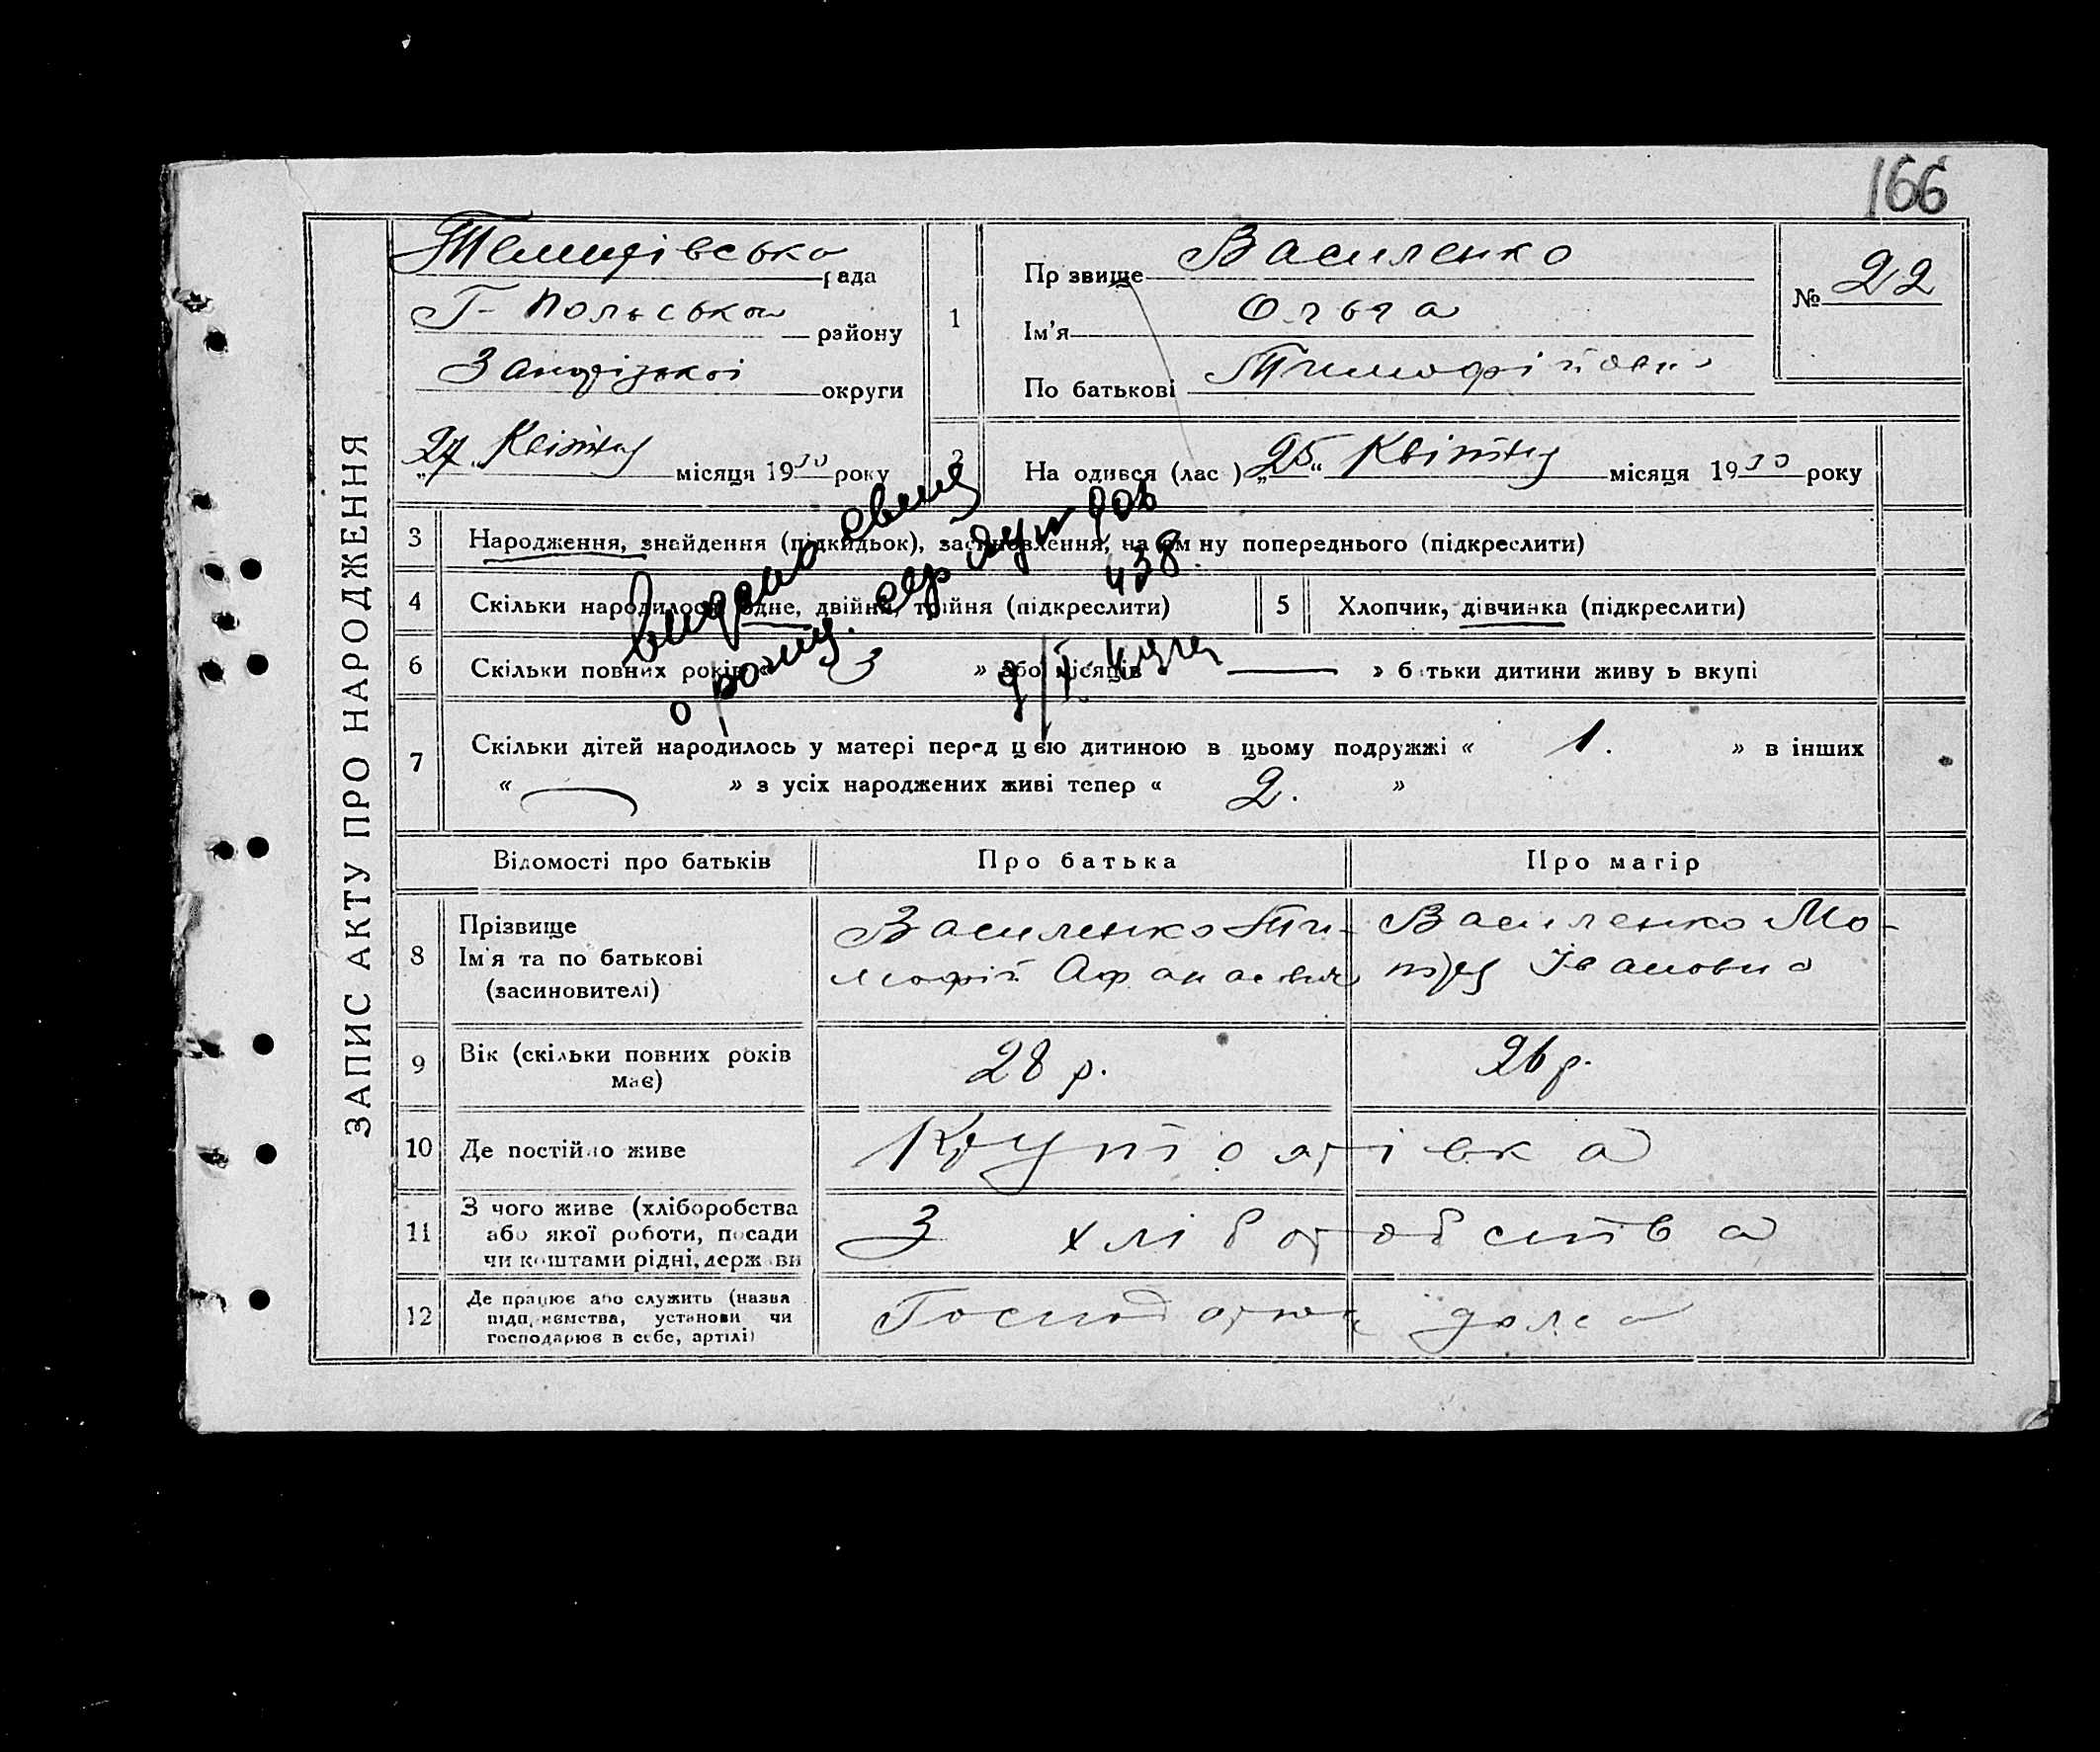 166
ЗАПИС АКТУ ПРО НАРОДЖЕННЯ
рада
Г-Польська району
округи
„27“ Квітня місяця 1930 року
1
Пр звище Василенко
Ім'я Ольга
По батькові Тимофіївна
№ 22
2
На одився (лас ) „25“ Квітня місяця 1930 року
3 Народження, знайдення (підкидьок), засиновлення, на зм ну попереднього (підкреслити)
4 Скільки народилося одне, двійня, трійня (підкреслити)
5 Хлопчик, дівчинка (підкреслити)
6 Скільки повних років « 3 » або місяців « — » б тьки дитини живу ь вкупі
7 Скільки дітей народилось у матері перед цією дитиною в цьому подружжі « 1. » в інших
« — » з усіх народжених живі тепер « 2. »
видано
о рожд.
438
Відомості про батьків Про батька Про матір
8 Прізвище
Ім'я та по батькові
(засиновителі)
Василенко Ти-
мофій
Василенко Мо-
тря Івановна
9 Вік (скільки повних років
має)
28 р. 26 р.
10 Де постійно живе Крутоярівка
11 З чого живе (хліборобства
або якої роботи, посади
чи коштами рідні, держ ви
З хліборобства
12 Де працює або служить (назва
підп, иємства, установи чи
господарює в себе, артілі)
Господарює дома